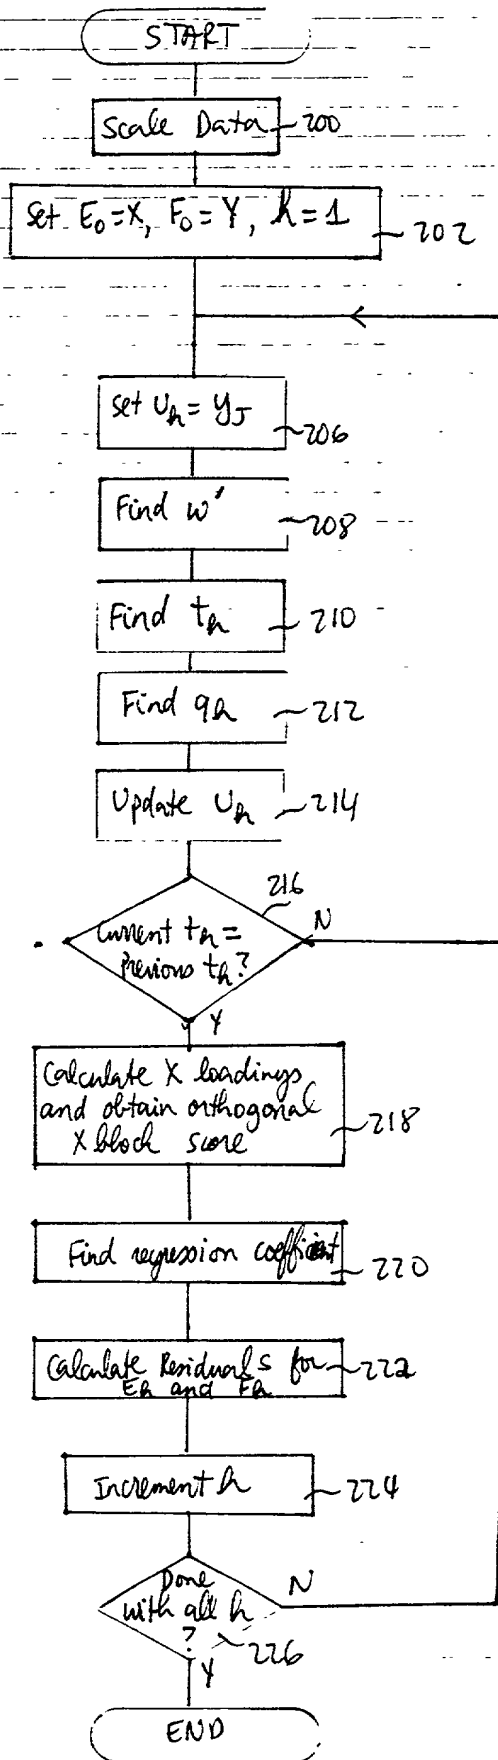 START
Scale Data
200
Set E₀=X, F₀=Y, h=1
202
Set u_h = y_J
206
Find w'
208
Find t_h
210
Find q_h
212
Update u_h
214
216
N
Current t_h =
Previous t_h?
Y
Calculate X loadings
and obtain orthogonal
X block score
218
Find regression coefficient
220
Calculate Residuals for
E_h and F_h
222
Increment h
224
Done
with all h
?
N
226
Y
END